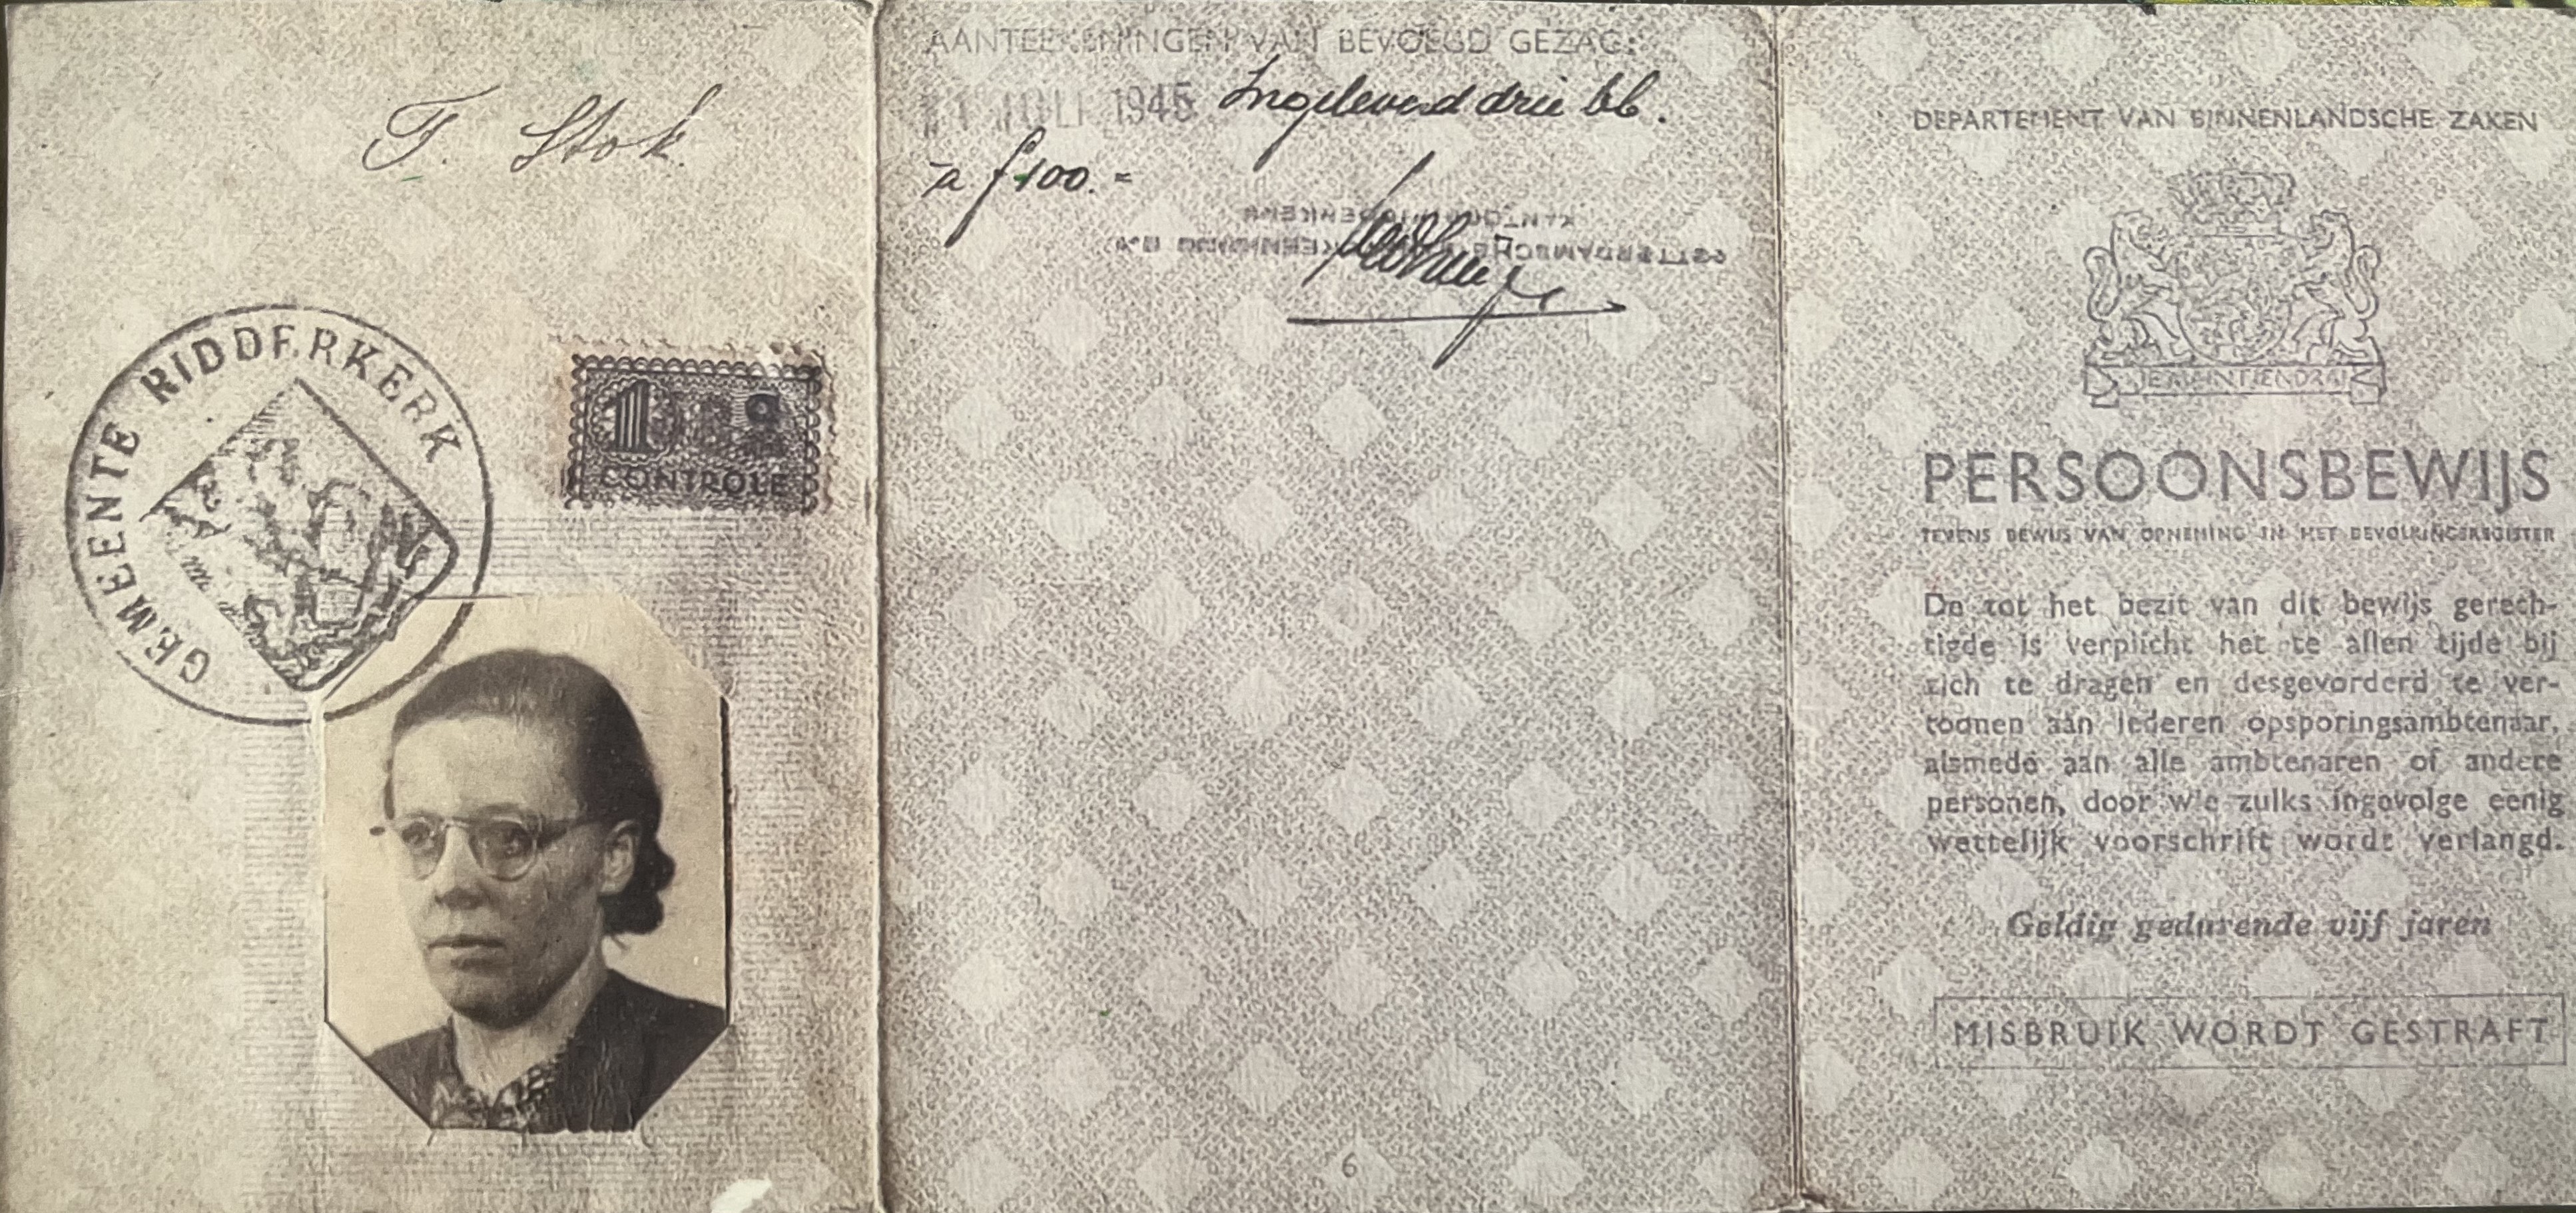 F. Stok.
GEMEENTE RIDDERKERK
1
CONTROLE
AANTEEKENINGEN VAN BEVOEGD GEZAG:
11 JULI 1945 Ingeleverd drie bb.
a f 100.=
KANTOOR RIDDERKERK
ROTTERDAMSCHE
6
DEPARTEMENT VAN BINNENLANDSCHE ZAKEN
JE MAINTIENDRAI
PERSOONSBEWIJS
TEVENS BEWIJS VAN OPNEMING IN HET BEVOLKINGSREGISTER
De tot het bezit van dit bewijs gerech-
tigde is verplicht het te allen tijde bij
zich te dragen en desgevorderd te ver-
toonen aan iederen opsporingsambtenaar,
alsmede aan alle ambtenaren of andere
personen, door wie zulks ingevolge eenig
wettelijk voorschrift wordt verlangd.
Geldig gedurende vijf jaren
MISBRUIK WORDT GESTRAFT